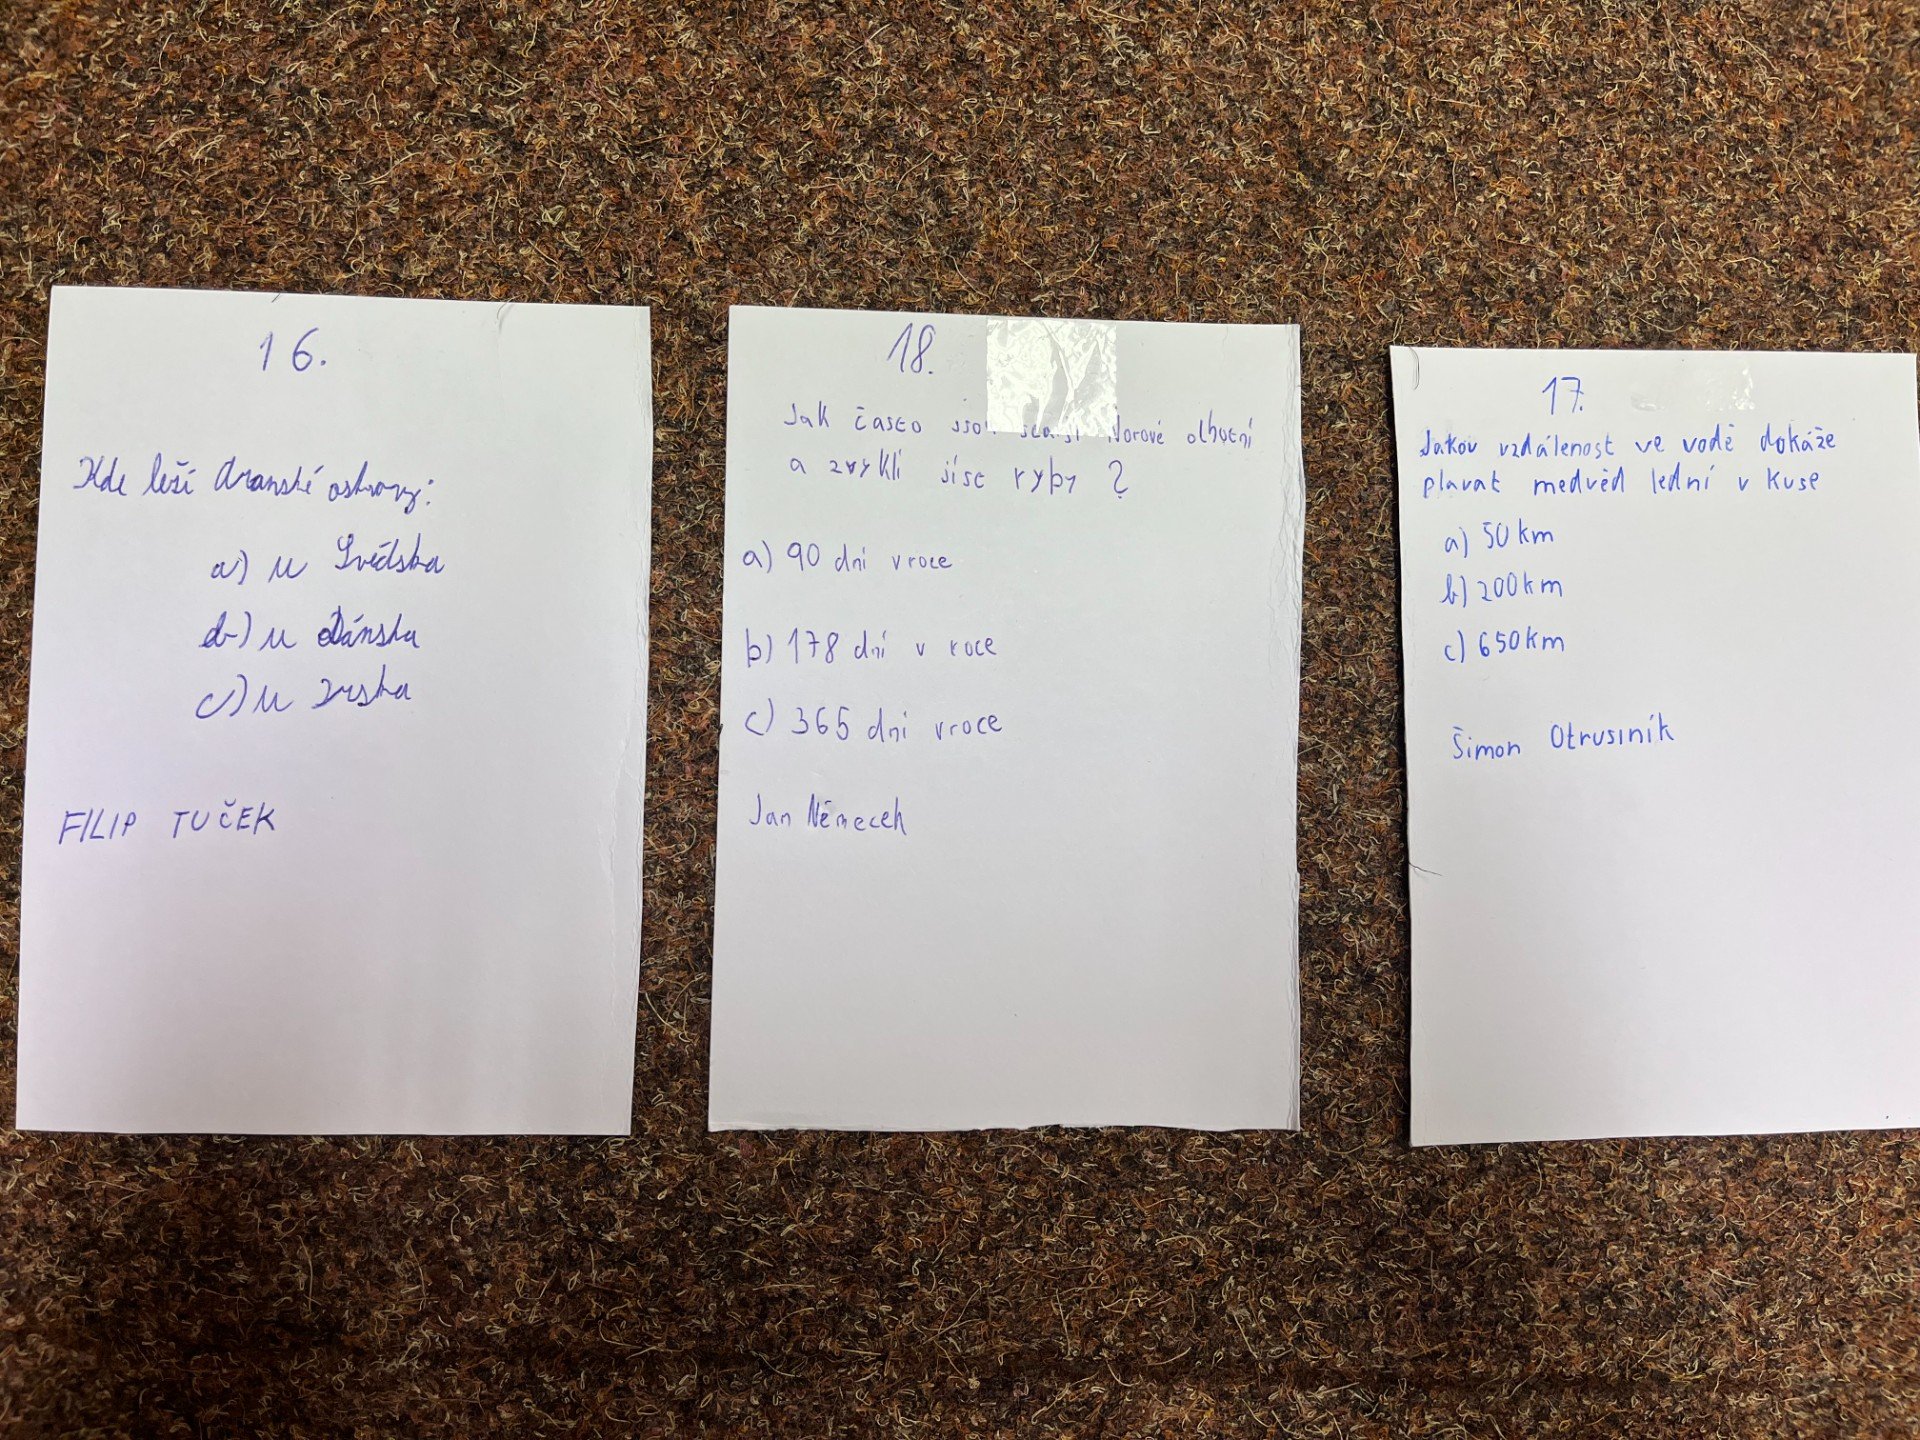 16.
Kde leží Aranské ostrovy:
a) u Švédska
b) u Dánska
c) u Irska
FILIP TUČEK
18.
Jak často jsou staří Norové ochotní
a zvyklí jíst ryby ?
a) 90 dní v roce
b) 178 dní v roce
c) 365 dní v roce
Jan Němeček
17.
Jakou vzdálenost ve vodě dokáže
plavat medvěd lední v kuse
a) 50 km
b) 200 km
c) 650 km
Šimon Otrusiník